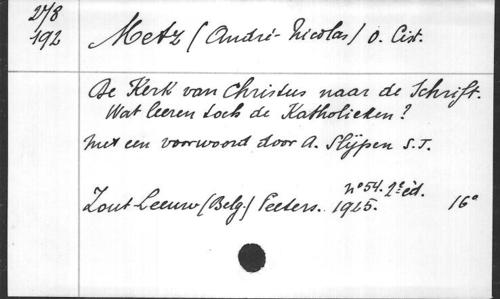 278
192
Metz (André-Nicolas) O. Cist.
De Kerk van Christus naar de Schrift.
Wat leeren toch de Katholieken?
met een voorwoord door A. Slijpen S.J.
n° 54. 2e éd.
Zout-Leeuw (Belg.) Peeters. 1925. 16°